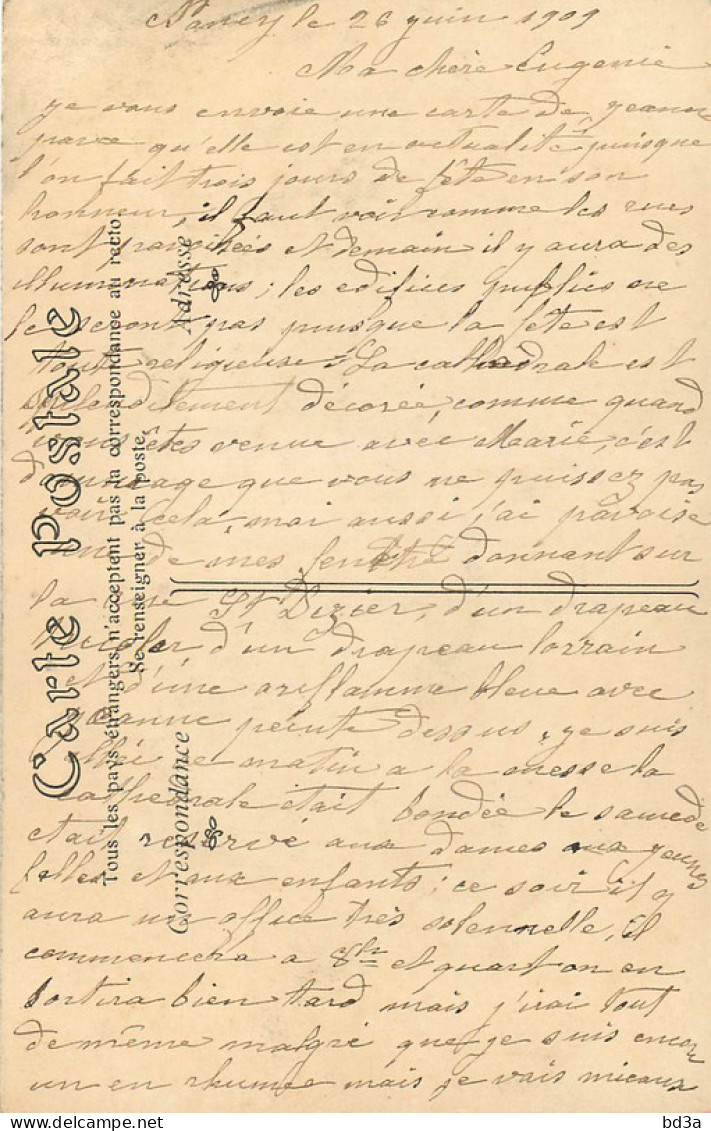 Nancy le 26 juin 1909
Ma chère Eugenie
je vous envoie une carte de Jeanne
parce qu'elle est en actualité puisque
l'on fait trois jours de fête en son
honneur, il faut voir comme les rues
sont pavoisées et demain il y aura des
illuminations; les edifices publics ne
le seront pas puisque la fête est
toute religieuse. La cathédrale est
splendidement décorée, comme quand
vous êtes venue avec Marie, c'est
dommage que vous ne puissez pas
voir cela, moi aussi j'ai pavoisé
une de mes fenêtre donnant sur
la rue St Dizier, d'un drapeau
tricolor d'un drapeau lorrain
et d'une oriflamme bleue avec
Jeanne peinte dessus, je suis
allée ce matin a la messe la
cathedrale était bondée le samedi
etait reservé aux dames aux jeunes
filles et aux enfants; ce soir il y
aura un office très solennelle, il
commencera a 8h et quart on en
sortira bien tard mais j'irai tout
de même malgré que je suis encore
un en rhumée mais je vais mieaux
Carte Postale
Tous les pays étrangers n'acceptent pas la correspondance au recto
Se renseigner à la poste
Correspondance
Adresse
bd3a